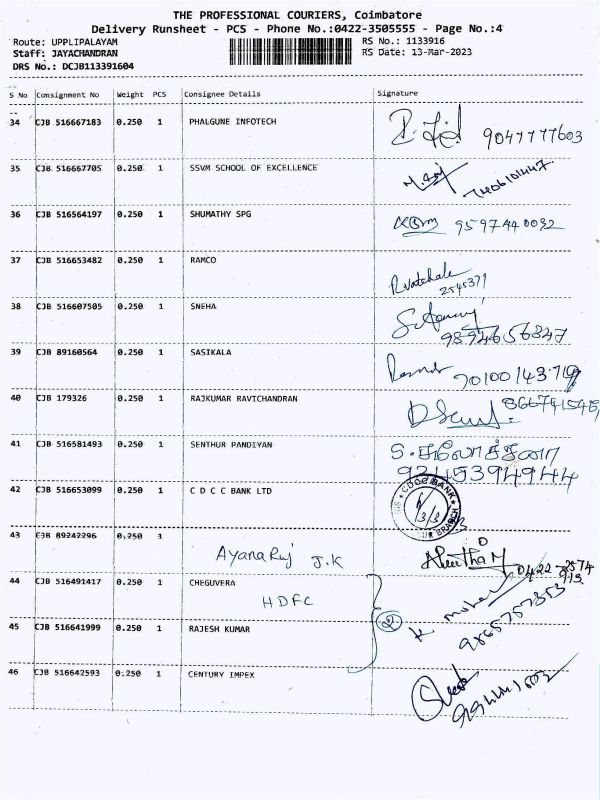 THE PROFESSIONAL COURIERS, Coimbatore
Delivery Runsheet - PCS - Phone No.:0422-3505555 - Page No.:4
Route: UPPLIPALAYAM RS No.: 1133916
Staff: JAYACHANDRAN RS Date: 13-Mar-2023
DRS No.: DCJB113391604
S No Consignment No Weight PCS Consignee Details Signature
34 CJB 516667183 0.250 1 PHALGUNE INFOTECH 9047777603
35 CJB 516667705 0.250 1 SSVM SCHOOL OF EXCELLENCE 7406101447
36 CJB 516564197 0.250 1 SHUMATHY SPG 9597440092
37 CJB 516653482 0.250 1 RAMCO
2545371
38 CJB 516607505 0.250 1 SNEHA
9894656847
39 CJB 89160564 0.250 1 SASIKALA
40 CJB 179326 0.250 1 RAJKUMAR RAVICHANDRAN
41 CJB 516581493 0.250 1 SENTHUR PANDIYAN S. சுலோச்சனா
42 CJB 516653099 0.250 1 C D C C BANK LTD CDCC BANK
43 CJB 89242296 0.250 1
Ayanaraj J.K
0422-2574
913
44 CJB 516491417 0.250 1 CHEGUVERA
HDFC
2
K. mohan
9865757353
45 CJB 516641999 0.250 1 RAJESH KUMAR
46 CJB 516642593 0.250 1 CENTURY IMPEX